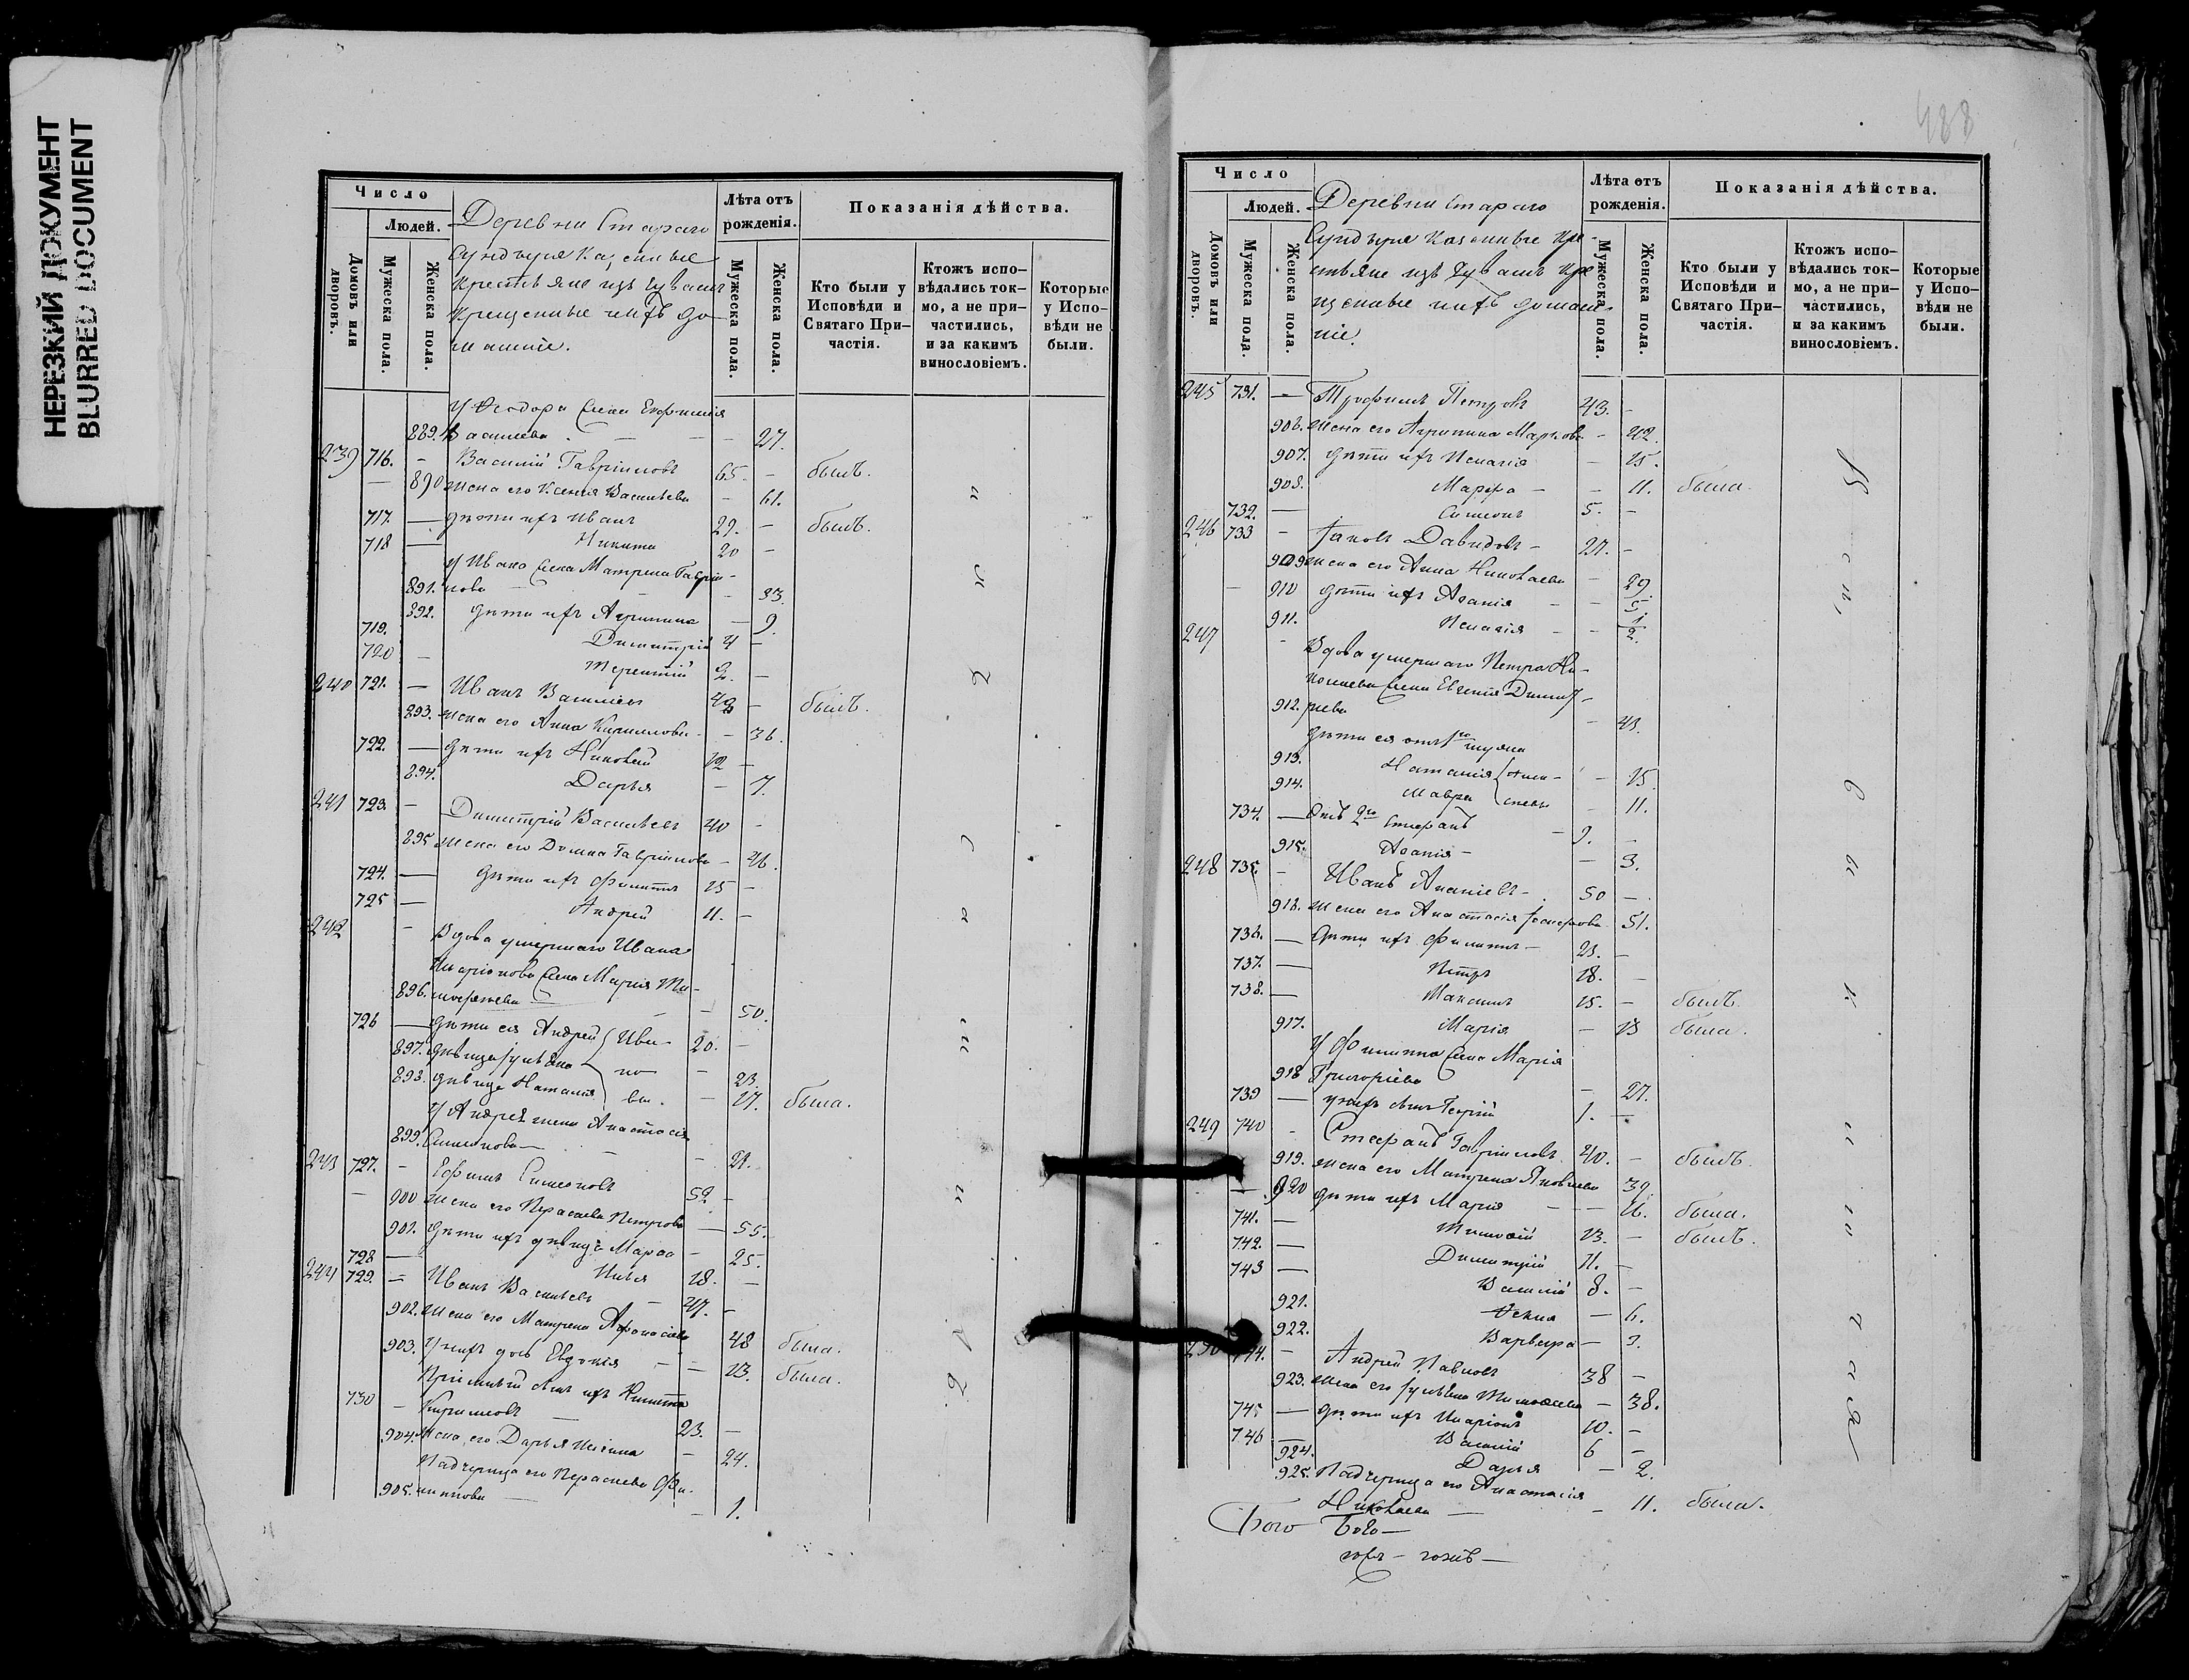 НЕРЕЗКИЙ ДОКУМЕНТ
BLURRED DOCUMENT
Число
Людей.
Домовъ или дворовъ.
Мужеска пола.
Женска пола.
Деревни Стараго
Сундыря Казенные
Крестьяне изъ Чувашъ
Крещенные ихъ до-
машніе.
Лѣта отъ рожденія.
Мужеска пола.
Женска пола.
Показанія дѣйства.
Кто были у Исповѣди и Святаго При-частія.
Ктожъ испо-вѣдались ток-мо, а не при-частились, и за какимъ винословіемъ.
Которые у Испо-вѣди не были.
У Ѳеодора жена Евфимія
889. Васильева - - - 27.
239 716. - Василій Гавріиловъ 65. - былъ.
- 890 жена его Ксенія Васильева - 61.
717. - дѣти ихъ Иванъ 29. - былъ.
718 - Никита 20 -
У Ивана жена Матрена Гаврии-
891. лова - - 33.
892. дѣти ихъ Агрипина - 9.
719. Димитрій 4 -
720 - Терентій 2. -
240 721. - Иванъ Васильевъ - былъ.
893. жена его Анна Кириллова - - 36.
722. - дѣти ихъ Николай 12 -
894. Дарья - 7.
241 723. - Димитрій Васильевъ 40 -
895 жена его Домна Гавріилова - 46.
724. - дѣти ихъ Филиппъ 15 -
725 - Андрей 11. -
242 - Вдова умершаго Ивана
Иларіонова жена Марія Ти-
896. моѳеева - - 50.
726 - дѣти ея Андрей Ива- 20. -
897. дѣвица Іуліана но- - 23.
898. дѣвица Наталія вы. - 17. была.
У Андрея жена Анастасія
899. Симеонова - - 21.
243 727. - Ефимъ Симеоновъ 52 -
- 900 жена его Параскева Петрова - 55.
901. дѣти ихъ дѣвица Марѳа - 25.
728 - Илья 18. -
244 729. - Иванъ Васильевъ - 47. -
902. жена его Матрена Афонасіева 48 была.
903. У нихъ дочь Евдокія - - 13. была.
Пріемный сынъ ихъ Никита
730 - Кирилловъ - 23. -
904. жена его Дарья Ильина - 24.
Падчерица его Параскева Фи-
905. липпова - - 1.
488
Число
Людей.
Домовъ или дворовъ.
Мужеска пола.
Женска пола.
Деревни Стараго
Сундыря Казенные Кре-
стьяне изъ Чувашъ Кре-
щенные ихъ домаш-
ніе.
Лѣта отъ рожденія.
Мужеска пола.
Женска пола.
Показанія дѣйства.
Кто были у Исповѣди и Святаго При-частія.
Ктожъ испо-вѣдались ток-мо, а не при-частились, и за какимъ винословіемъ.
Которые у Испо-вѣди не были.
245 731. - Трофимъ Петровъ 43. -
906. жена его Агрипина Маркова - 42.
907. дѣти ихъ Пелагія - 15.
908. Марфа - - 11. была.
732. - Симеонъ 5. -
246 733 - Іаковъ Давидовъ - 27. -
909 жена его Анна Николаева - 29.
- 910 дѣти ихъ Агапія - - 5.
911. Пелагія - - 1/2.
247 - Вдова умершаго Петра Ни-
колаева жена Евгенія Димит-
912. ріева - 43.
дѣти ея отъ 1го мужа
913. Наталія - 15.
914. Мавра - 11.
734. - Отъ 2го Стефанъ - 9. -
915. Агапія - - 3.
248 735. - Иванъ Ананіевъ - 50 -
916. жена его Анастасія 51.
736. - дѣти ихъ Филиппъ - 23. -
737. - Петръ 18. -
738. - Максимъ 15. - былъ.
917. Марія - 13 была.
У Филиппа жена Марія
918 Григоріева - 27.
739 - у нихъ сынъ Георгій 1. -
249 740 - Стефанъ Гавріиловъ 40. - былъ.
919. жена его Матрена Яковлева 39.
- 920 дѣти ихъ Марія - - 16. была.
741. - Тимоѳей 13. - былъ.
742. - Димитрій 11. -
743 - Василій 8. -
921. Ѳекла - 6.
922. Варвара - 3.
250 744. - Андрей Павловъ 38 -
923. жена его Іуліана Тимоѳеева - 38.
745 - дѣти ихъ Иларіонъ 10. -
746 - Василій 6 -
924. Дарья - 2.
925. Падчерица его Анастасія
Николаева - - 11. была.